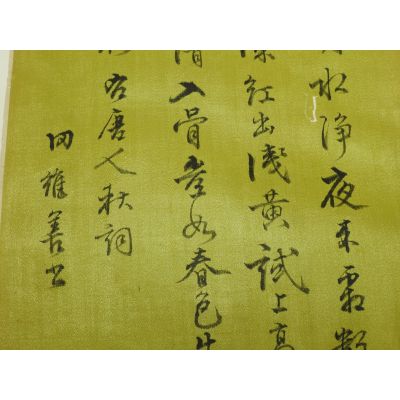 水淨夜来霜數
深红出淺黄試上高
清入骨豈如春色
右唐人秋詞
田雄善书